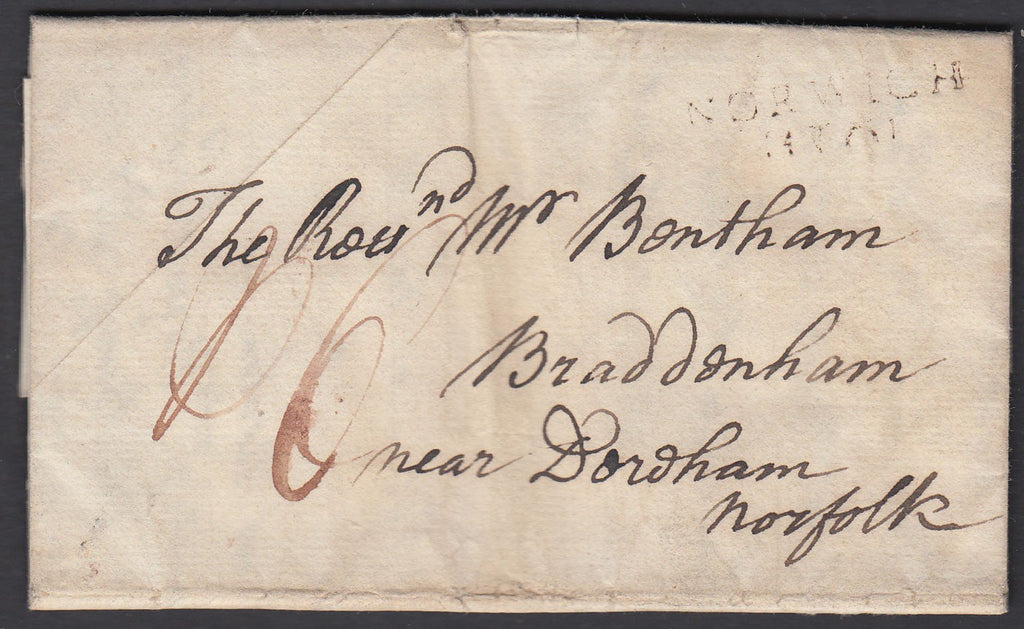 NORWICH
The Revnd Mr Bentham
Braddenham
6
near Dereham
Norfolk